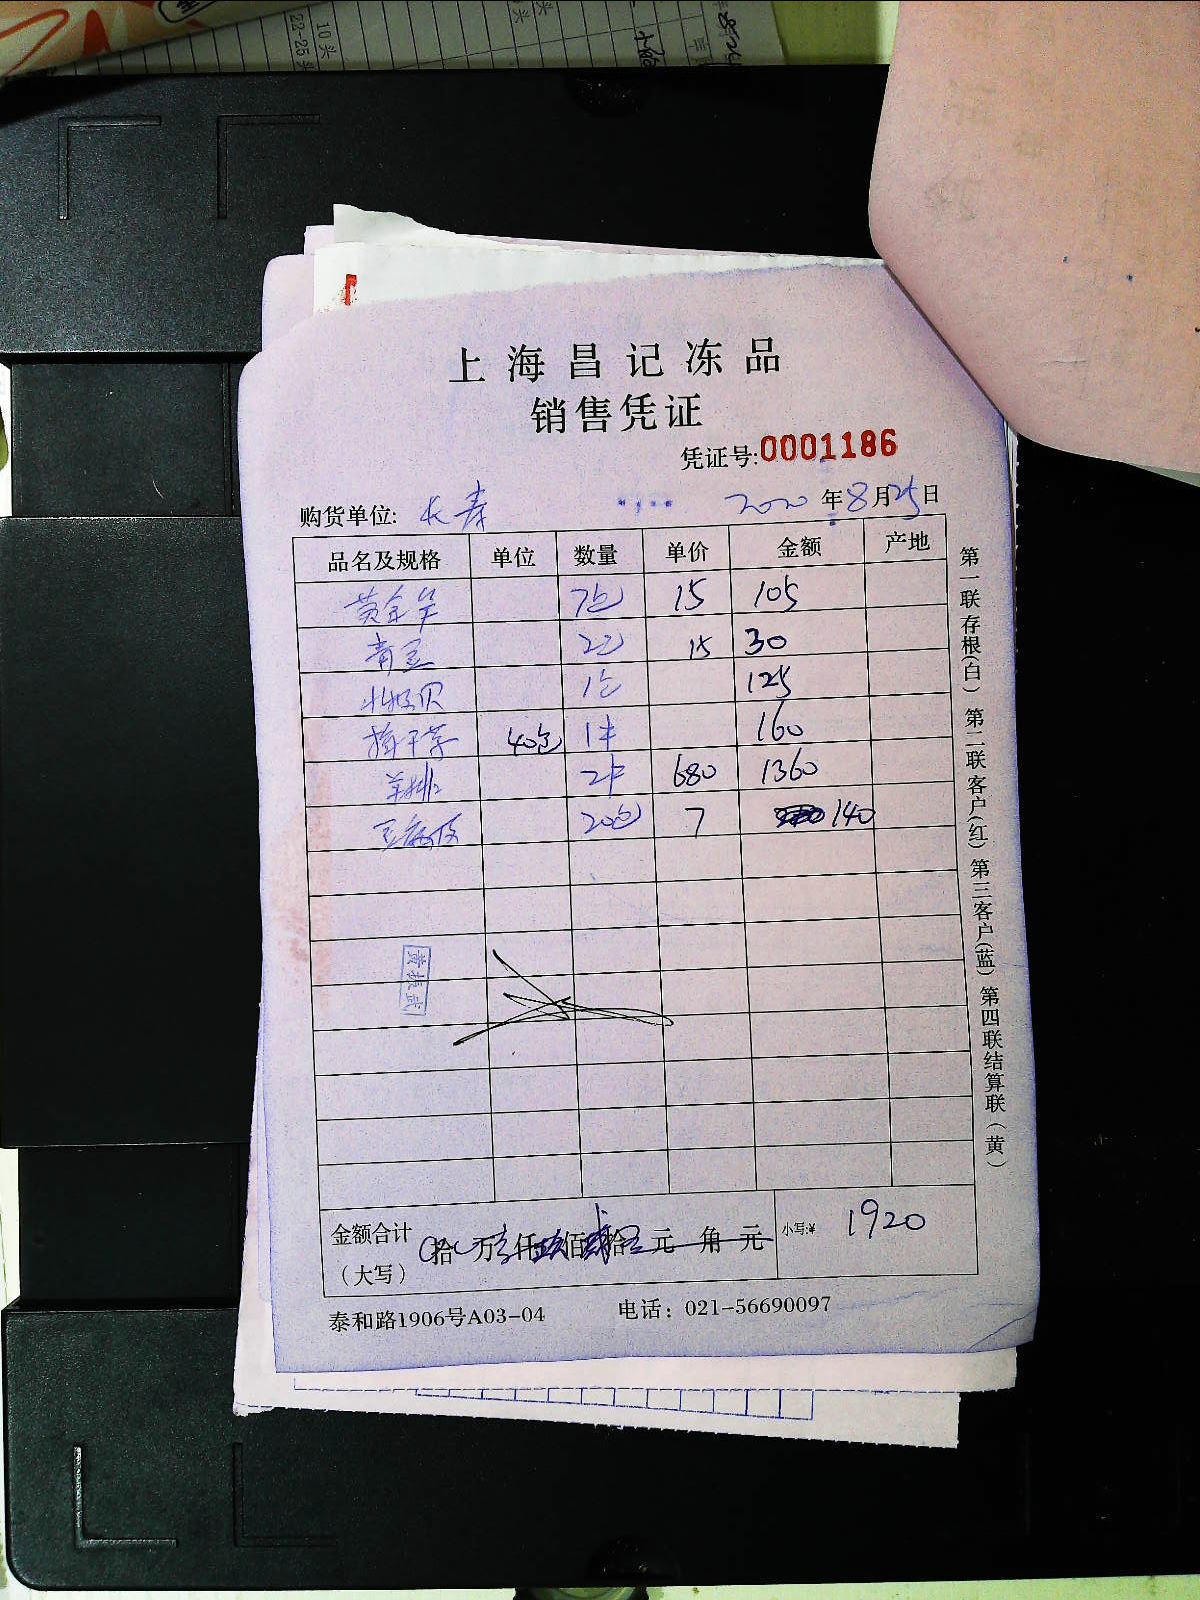 10头
22-25头
上海昌记冻品
销售凭证
凭证号:0001186
购货单位: 长寿 2020年8月25日
品名及规格 单位 数量 单价 金额 产地
黄金笋 7包 15 105
青豆 2包 15 30
北极贝 1包 125
梅干菜 40包 1件 160
羊排 2件 680 1360
豆腐皮 20包 7 140
黄振武
金额合计 拾 万 壹仟 玖佰 贰拾 元 角 元 小写:¥ 1920
(大写)
泰和路1906号A03-04 电话: 021-56690097
第一联存根(白) 第二联客户(红) 第三客户(蓝) 第四联结算联(黄)